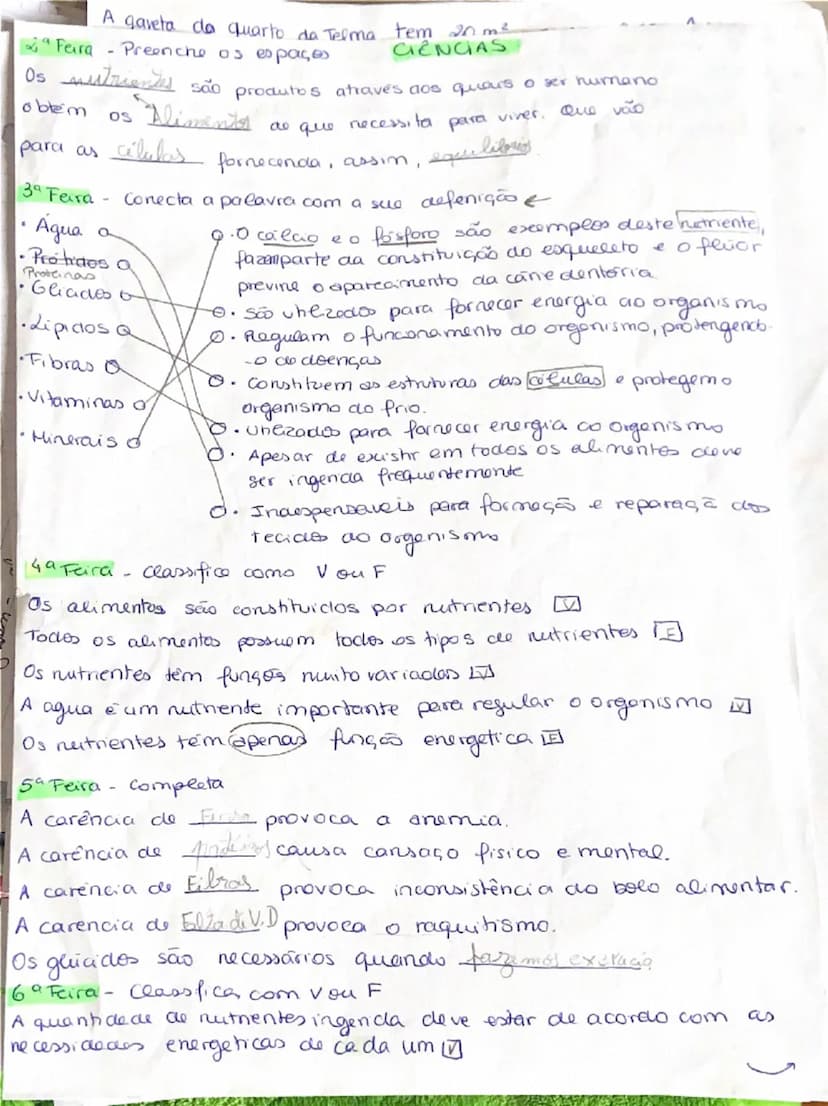 A gaveta do quarto da Telma tem 20 m²
2ª Feira - Preenche os espaços CIÊNCIAS
Os nutrientes são produtos através dos quais o ser humano
obtém os Alimentos de que necessita para viver. Que vão
para as células fornecendo, assim, equilibrio
3ª Feira - Conecta a palavra com a sua defenição ←
• Água
• Prótidos
Proteínas
• Glícidos
• Lípidos
• Fibras
• Vitaminas
• Minerais
• O cálcio e o fósforo são exemplos deste nutriente,
fazem parte da constituição do esqueleto e o flúor
previne o aparecimento da cárie dentária
• São utilizados para fornecer energia ao organismo
• Regulam o funcionamento do organismo, protengendo-
-o de doenças
• Constituem as estruturas das células e protegem o
organismo do frio.
• Utilizados para fornecer energia ao organismo
• Apesar de existir em todos os alimentos deve
ser ingerida frequentemente
• Indespensaveis para formação e reparaçã dos
tecidos do organismo
4ª Feira - Classifica como V ou F
Os alimentos são constituidos por nutrientes V
Todos os alimentos possuem todos os tipos de nutrientes F
Os nutrientes têm funções muito variadas V
A agua é um nutriente importante para regular o organismo V
Os nutrientes têm apenas função energetica F
5ª Feira - Completa
A carência de provoca a anemia.
A carência de causa cansaço fisico e mental.
A carência de Fibras provoca inconsistência do bolo alimentar.
A carencia de Falta de V.D provoca o raquitismo.
Os glícidos são necessários quando fazemos exercicio
6ª Feira - Classifica com V ou F
A quantidade de nutrientes ingerida deve estar de acordo com as
necessidades energeticas de cada um V